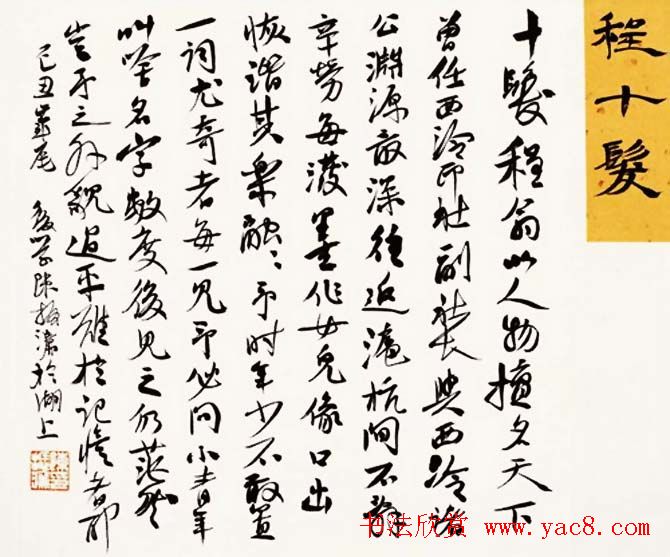 程十髮
十髮程翁以人物擅名天下
曾任西泠印社副社長與西泠諸
公淵源最深往返滬杭間不辭
辛勞每潑墨作女兒像口出
恢諧其樂融融予時年少不敢置
一詞尤奇者每一見予必問小青年
叫啥名字數度後見之仍茫然
豈予之外貌過平難於記憶者耶
己丑歲尾 後學陳振濂於湖上
书法欣赏 www.yac8.com